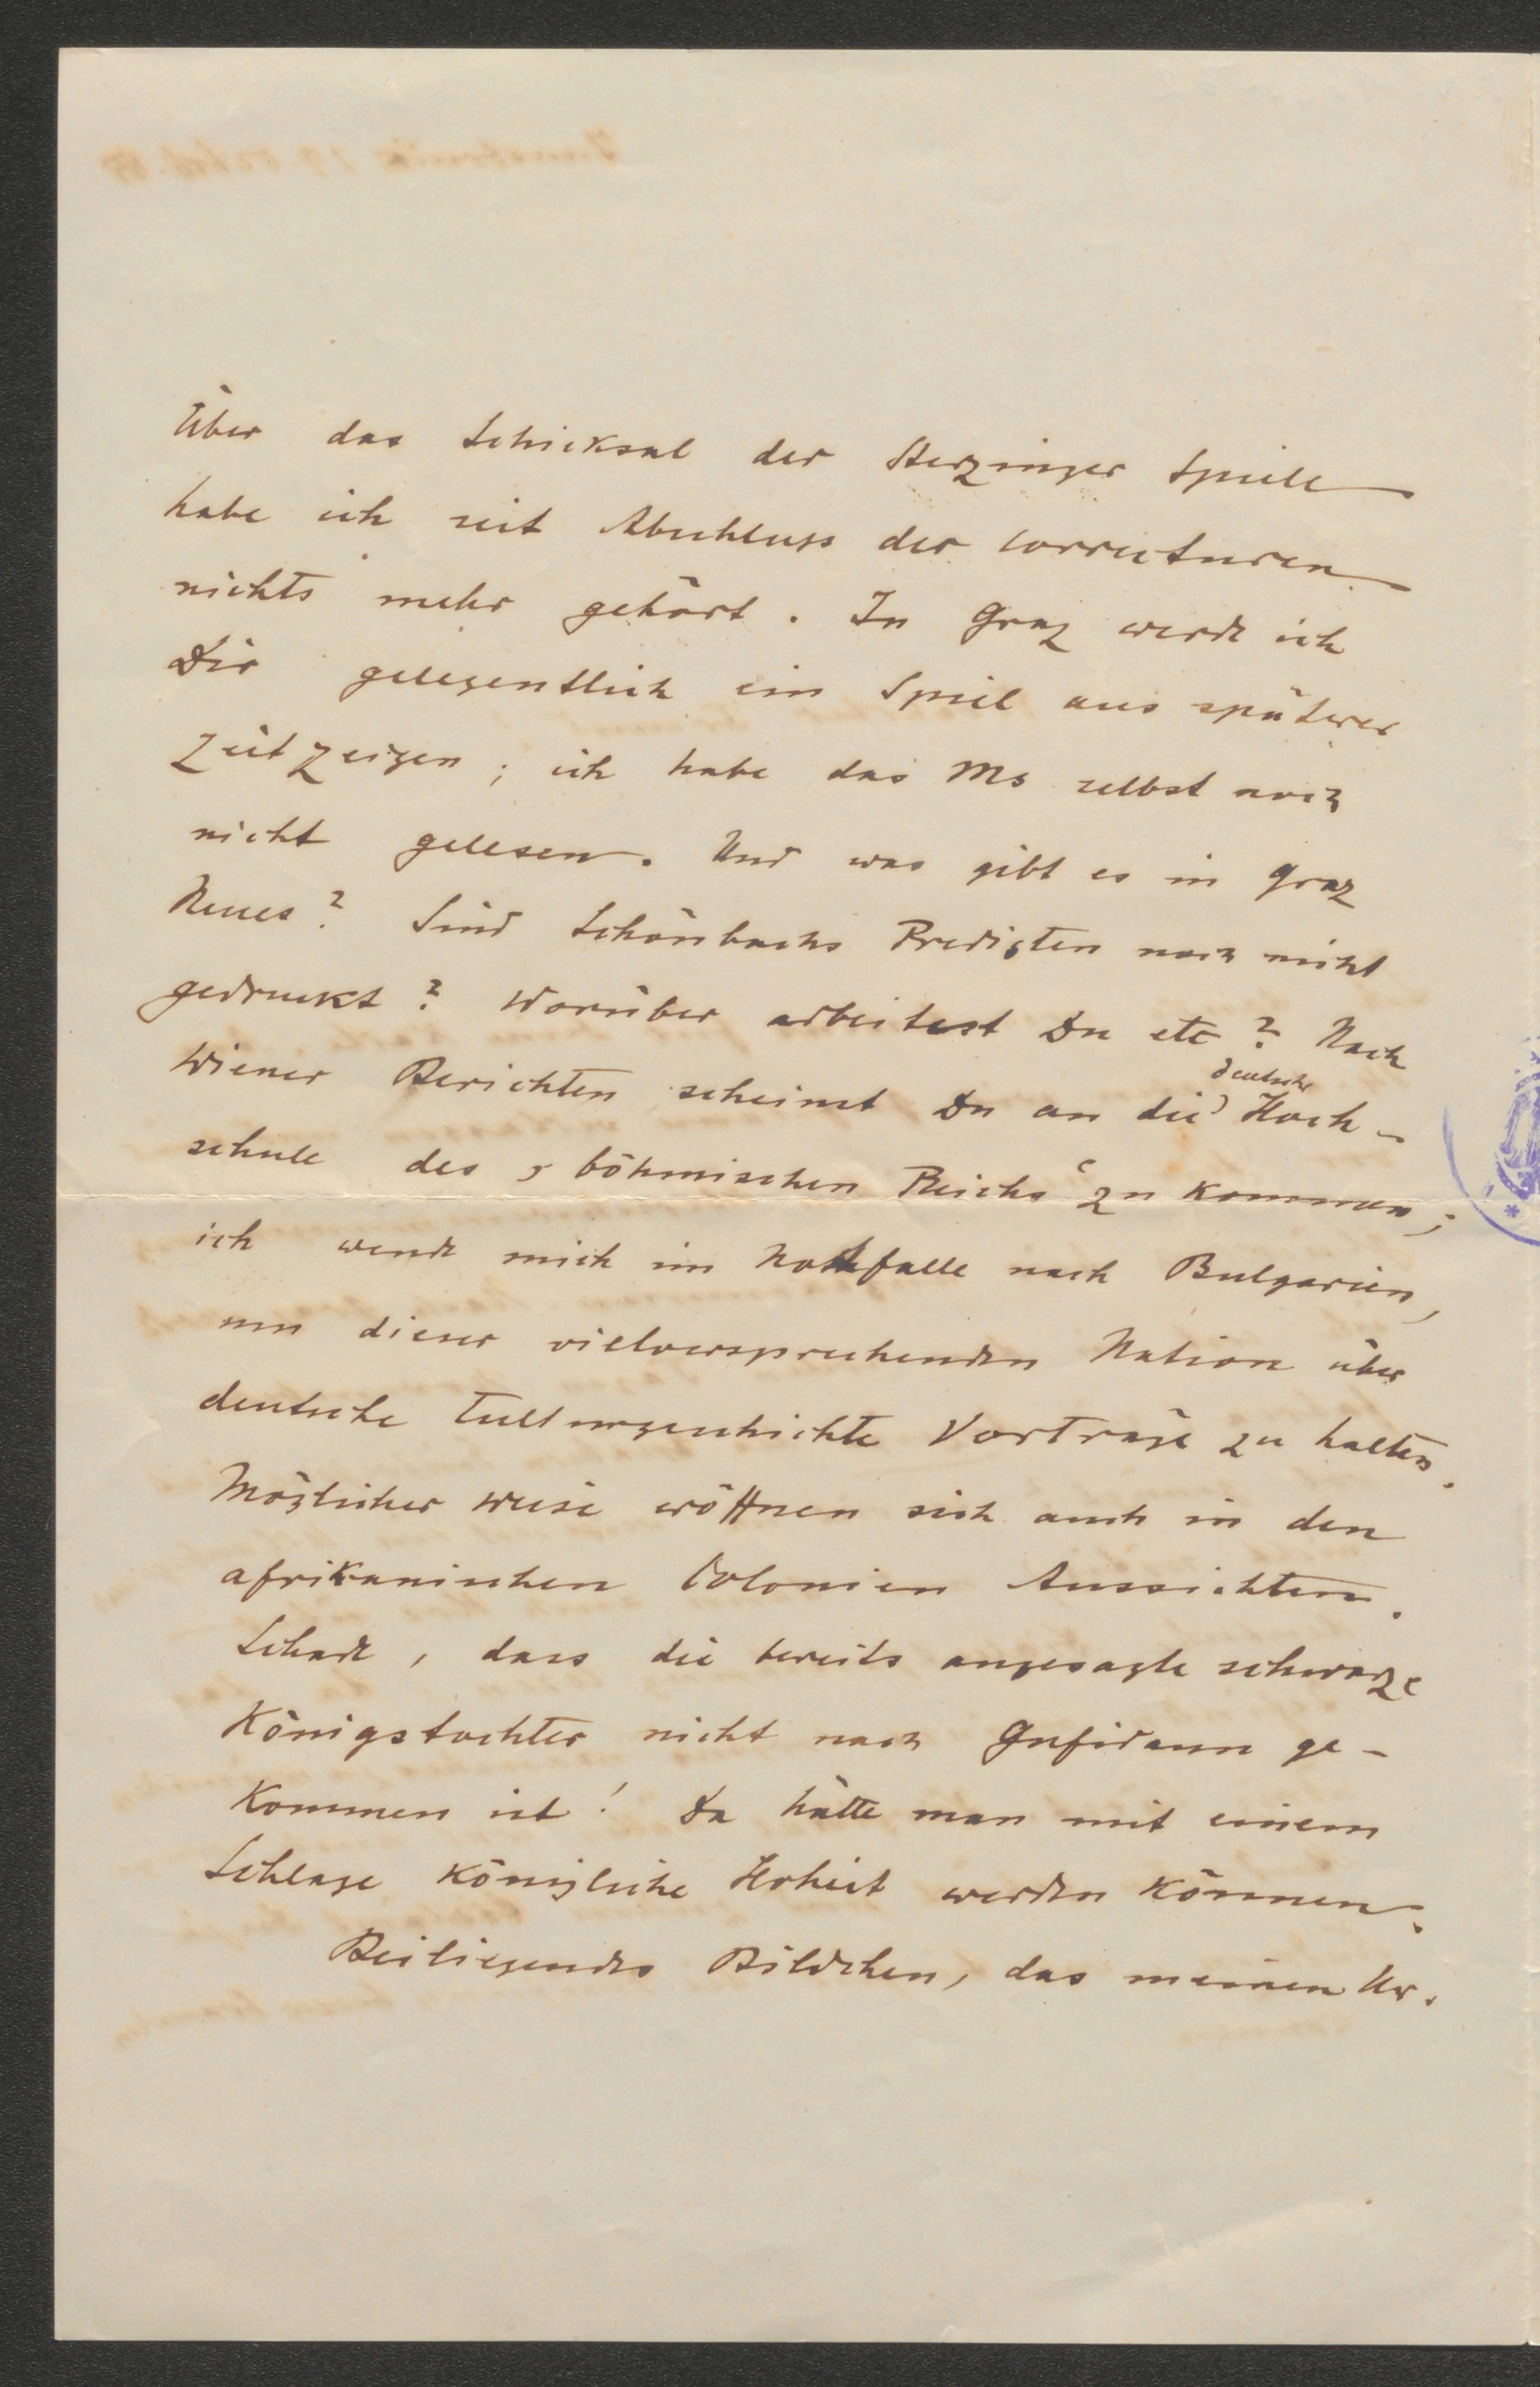 Über das Schicksal der Sterzinger Spiele
habe ich seit Abschluss der Correcturen
nichts mehr gehört. In Graz werde ich
Dir gelegentlich ein Spiel aus späterer
Zeit zeigen; ich habe das Ms selbst noch
nicht gelesen. Und was gibt es in Graz
Neues? Sind Schönbachs Predigten noch nicht
gedruckt? Worüber arbeitest Du etc? Nach
deutsche
Wiener Berichten scheinst Du an die Hoch-
schule des „böhmischen Reichs“ zu kommen;
ich wende mich im Nothfalle nach Bulgarien,
um dieser vielversprechenden Nation über
deutsche Culturgeschichte Vorträge zu halten.
Möglicher weise eröffnen sich auch in den
afrikanischen Colonien Aussichten.
Schade, dass die bereits angesagte schwarze
Königstochter nicht nach Gufidaun ge-
kommen ist! Da hätte man mit einem
Schlage königliche Hoheit werden können.
Beiliegendes Bildchen, das meinen Ur.